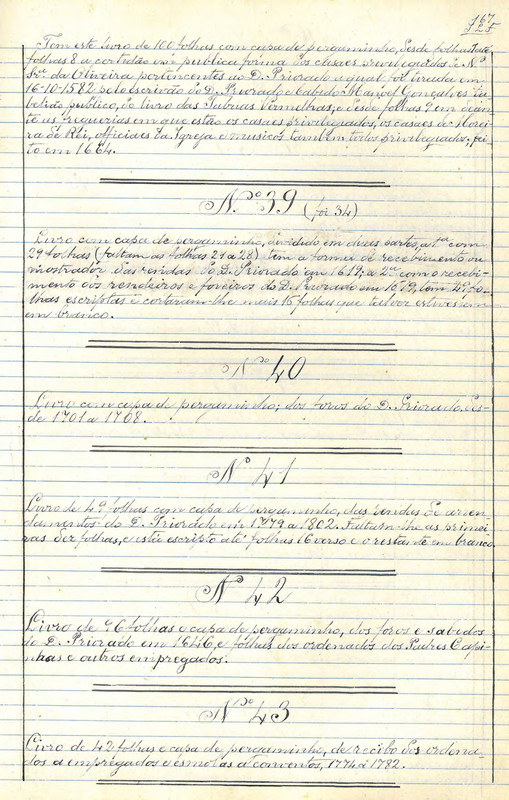 167
Tem este livro de 100 folhas com capa de pergaminho, desde folhas 1 até
folhas 8 a certidão em publica fórma dos casaes privelegiados de Nª
Srª da Oliveira pertencentes ao D. Priorado e qual foi tirada em
16-10-1582 pelo escrivão do D. Priorado e Cabido Manoel Gonçalves ta-
belião publico, do livro das Tabuas Vermelhas, e desde folhas 9 em dean-
te as freguezias em que estão os casaes privilegiados, os casaes de Morei-
ra de Rei, officiaes da Igreja e musicos tambem todos privilegiados; fei-
to em 1664.
Nº 39 (foi 34)
Livro com capa de pergaminho, dividido em duas partes, a 1ª com
29 folhas (faltam as folhas 21 a 28) tem a forma de recebimento ou
mostrador das rendas do D. Priorado em 1619; a 2ª com o recebi-
mento dos rendeiros e foreiros do D. Priorado em 1619, tem 49 fo-
lhas escriptas e cortaram-lhe mais 16 folhas que talvez estivessem
em branco.
Nº 40
Livro com capa de pergaminho; dos foros do D. Priorado, des-
de 1701 a 1708.
Nº 41
Livro de 49 folhas com capa de pergaminho, das rendas de arren-
damentos do D. Priorado em 1779 a 1802. Faltam-lhe as primei-
ras dez folhas, e está escripto até folhas 16 verso e o restante em branco.
Nº 42
Livro de 96 folhas e capa de pergaminho, dos foros e sabidos
do D. Priorado em 1646, e folhas dos ordenados dos Padres Capi-
nhas e outros empregados.
Nº 43
Livro de 42 folhas e capa de pergaminho, de recibo dos ordena-
dos a empregados e esmolas a conventos, 1774 a 1782.